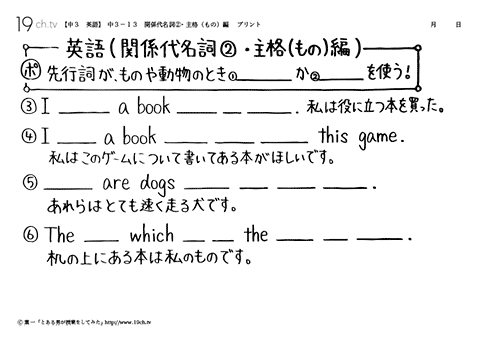 19ch.tv 【中3 英語】 中3-13 関係代名詞②・主格(もの)編 プリント 月 日
英語(関係代名詞②・主格(もの)編)
ポ 先行詞が、ものや動物のとき①______か②______を使う!
③ I ____ a book ____ ____ ____. 私は役に立つ本を買った。
④ I ____ a book ____ ____ ____ this game.
私はこのゲームについて書いてある本がほしいです。
⑤ ____ are dogs ____ ____ ____ ____.
あれらはとても速く走る犬です。
⑥ The ____ which ____ the ____ ____ ____.
机の上にある本は私のものです。
© 葉一「とある男が授業をしてみた」http://www.19ch.tv